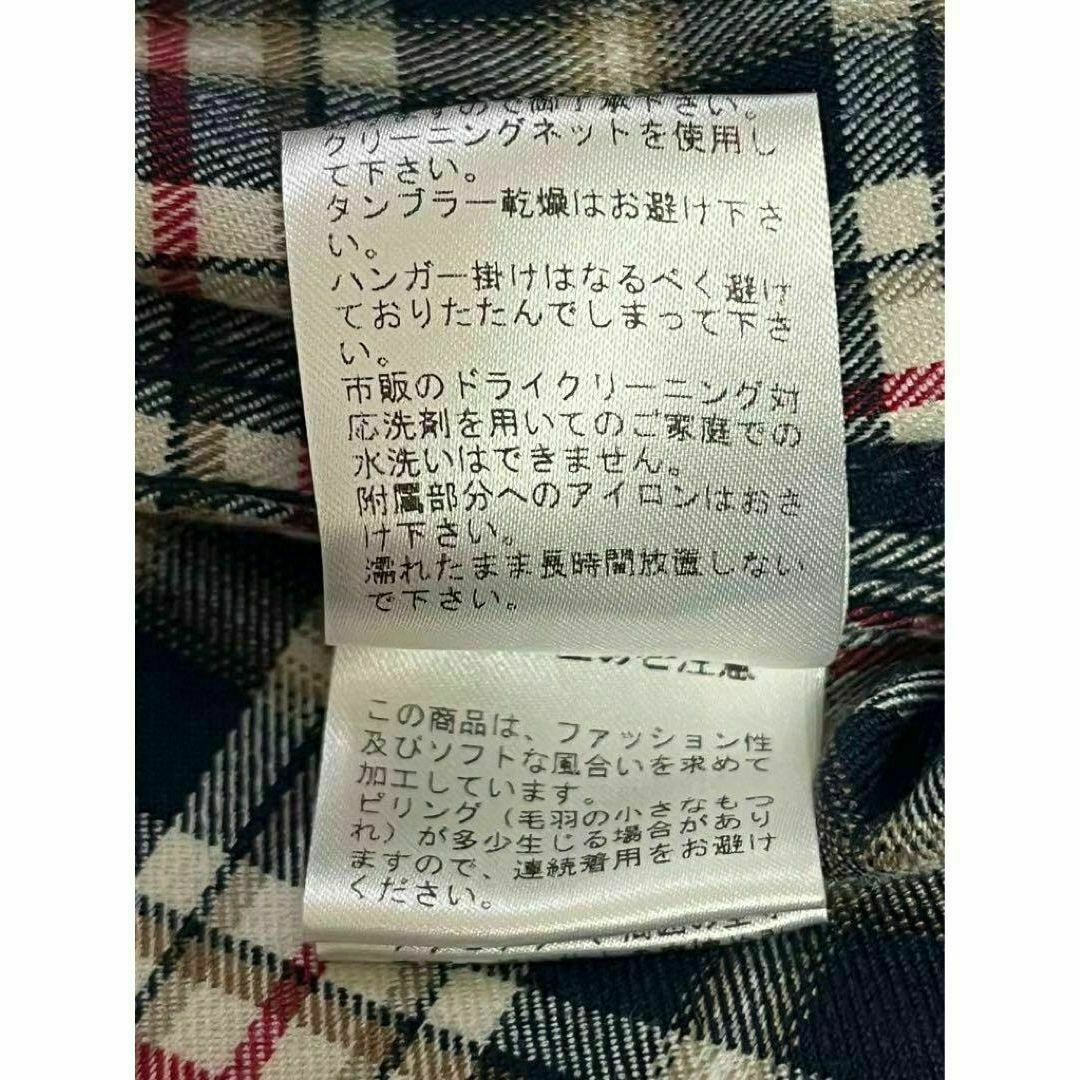 すので御了承下さい。
クリーニングネットを使用し
て下さい。
タンブラー乾燥はお避け下さ
い。
ハンガー掛けはなるべく避け
ておりたたんでしまって下さ
い。
市販のドライクリーニング対
応洗剤を用いてのご家庭での
水洗いはできません。
附属部分へのアイロンはおさ
け下さい。
濡れたまま長時間放置しない
で下さい。
のご注意
この商品は、ファッション性
及びソフトな風合いを求めて
加工しています。
ピリング（毛羽の小さなもつ
れ）が多少生じる場合があり
ますので、連続着用をお避け
ください。